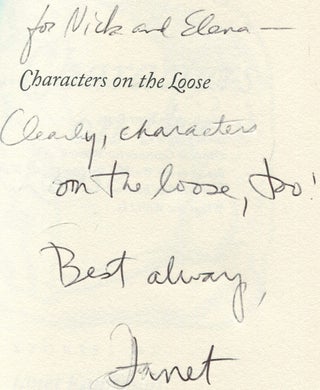 for Nick and Elena —
Characters on the Loose
Clearly, characters
on the loose, too!
Best always,
Janet